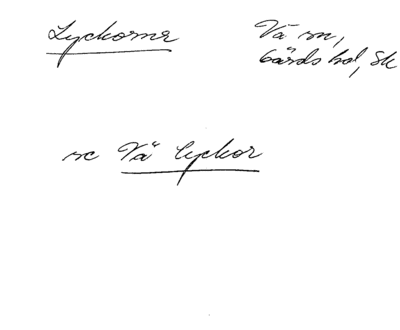 Lyckorna
Vä sn,
Gärds hd, Sk
se Vä lyckor